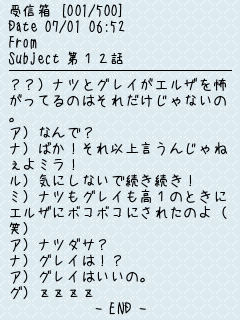 受信箱 [001/500]
Date 07/01 06:52
From
Subject 第１２話
？？）ナツとグレイがエルザを怖
がってるのはそれだけじゃないの
。
ア）なんで？
ナ）ばか！それ以上言うんじゃね
ぇよミラ！
ル）気にしないで続き続き！
ミ）ナツもグレイも高１のときに
エルザにボコボコにされたのよ（
笑）
ア）ナツダサ？
ナ）グレイは！？
ア）グレイはいいの。
グ）ｚｚｚｚ
- END -